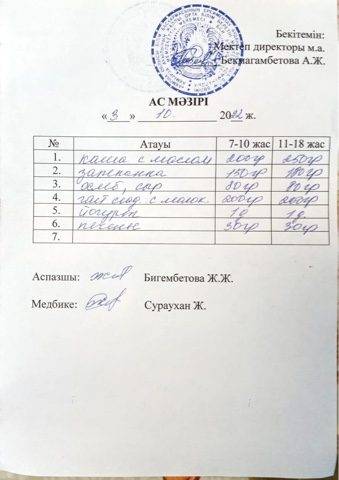 Бекітемін:
Мектеп директоры м.а.
Бекмагамбетова А.Ж.
АС МӘЗІРІ
« 3 » 10. 2022 ж.
№ Атауы 7-10 жас 11-18 жас
1. каша с маслом 200гр 250гр
2. запеканка 150гр 180гр
3. хлеб, сыр 80гр
4. 200гр 200гр
5. йогурт 1д 1д
6. печенье 30гр 30гр
7.
Аспазшы: Бигембетова Ж.Ж.
Медбике: Сураухан Ж.